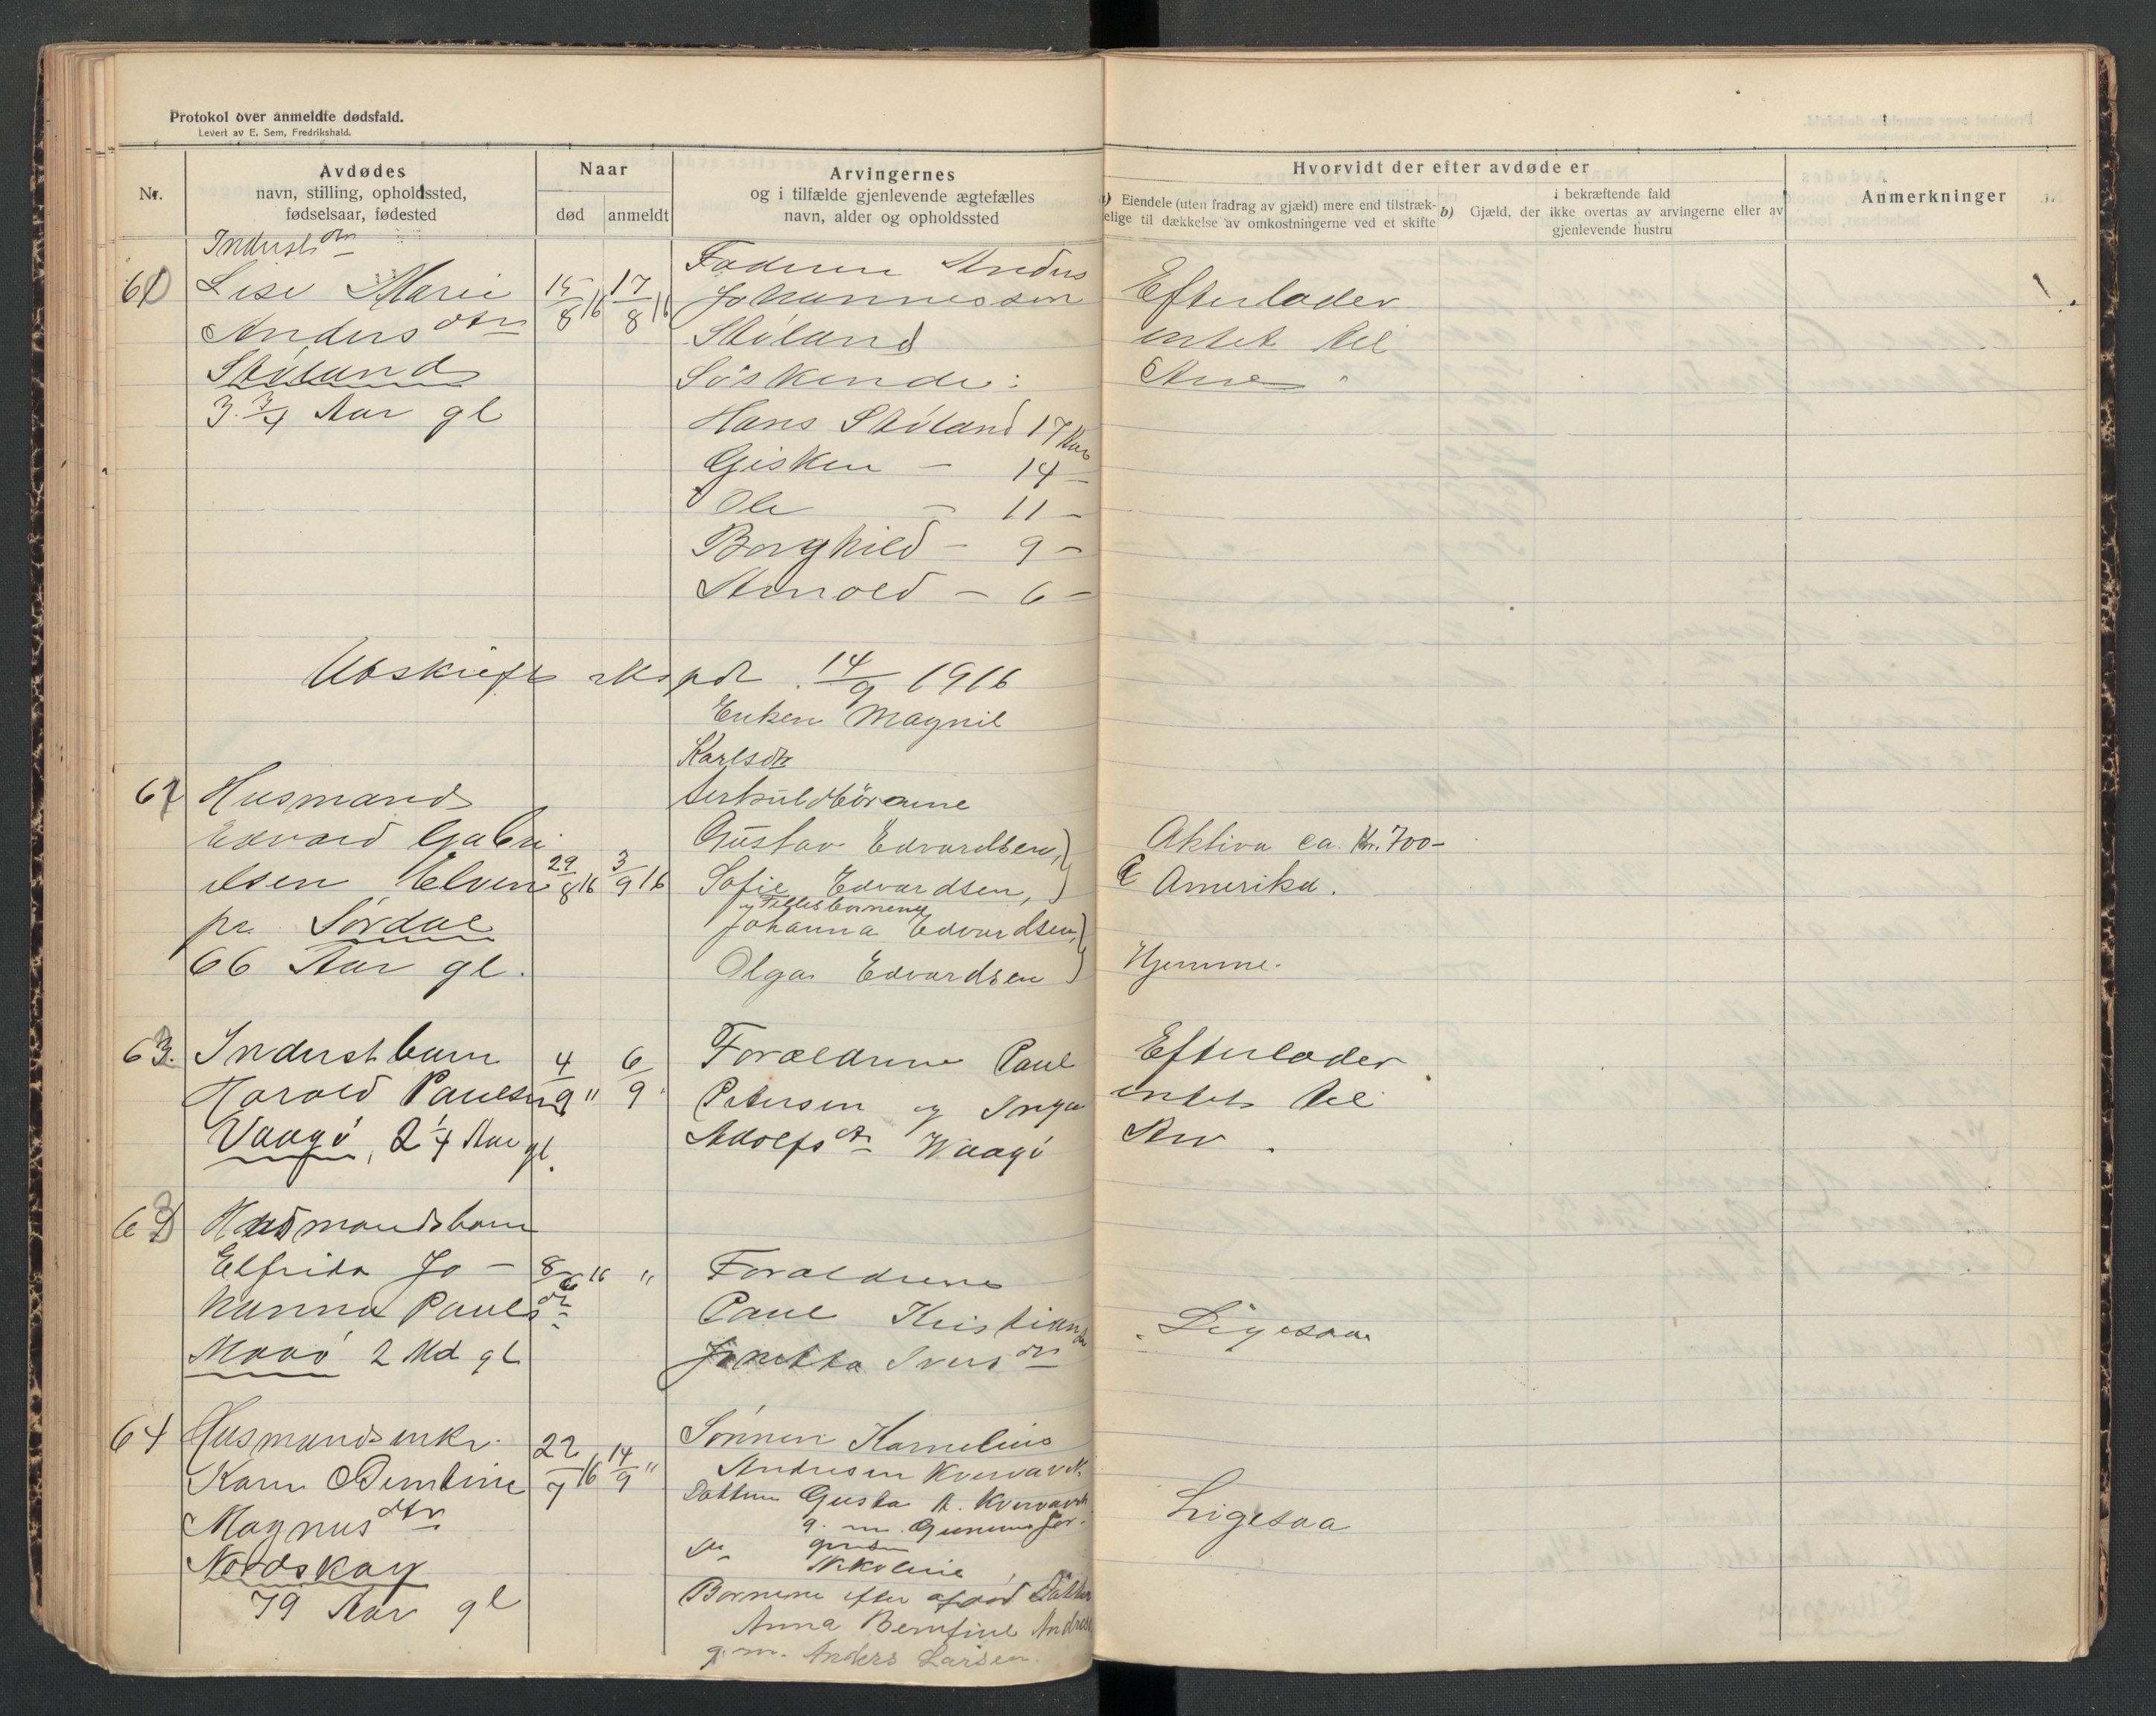 Protokol over anmeldte dødsfald.
Levert av E. Sem, Fredrikshald.
Nr.
Avdødes
navn, stilling, opholdssted,
fødselsaar, fødested
Naar
død
anmeldt
Arvingernes
og i tilfælde gjenlevende ægtefælles
navn, alder og opholdssted
Hvorvidt der efter avdøde er
a) Eiendele (uten fradrag av gjæld) mere end tilstræk-
kelige til dækkelse av omkostningerne ved et skifte
i bekræftende fald
b) Gjæld, der ikke overtas av arvingerne eller av
gjenlevende hustru
Anmerkninger
61
Inderst dtr
Lise Marie
Anders dtr
Støland
3. 3/4 Aar gl
15/8 16
17/8 16
Faderen Anders
Johannessen
Støland
Søskende:
Hans Støland 17 Aar
Gisken — 14 —
Ole — 11 —
Borghild — 9 —
Arnold — 6 —
Efterlader
intet til
Arv.
Utskrift ekspdt. 14/9 1916
62
Husmand
Edvard Gabri
elsen Elven
pr. Sørdal
66 Aar gl.
29/8 16
3/9 16
Enken Magnil
Karlsdtr
Gustav Edvardsen,
Sofie Edvardsen,
og Fellesbørnene
Johanna Edvardsen,
Olga Edvardsen
Aktiva ca. Kr. 700-
Amerika.
Hjemme.
63.
Inderst barn
Harold Paulsen
Vaagø, 2 1/4 Aar gl.
4/9 "
6/9 "
Forældrene Paul
Petersen og Inga
Adolfs dtr Waagø
Efterlader
intet til
Arv.
63
Husmandsbarn
Elfrida Jo-
hanna Pauls dtr
2 Md gl
8/6 16 "
Forældrene
Paul Kristian
Jonetta Ivers dtr
Ligesaa
64
Husmandsenke
Karn Berntine
Magnus dtr
Nordskag
79 Aar gl
22/7 16
14/9 "
Sønnen Kornelius
Andresen Kvervavik
Datteren Gusta A. Kvervavik
g. m.
Nikoline,
Børnene efter afdød Datter
Anna Berntine Andres
g. m. Anders Larsen.
Ligesaa